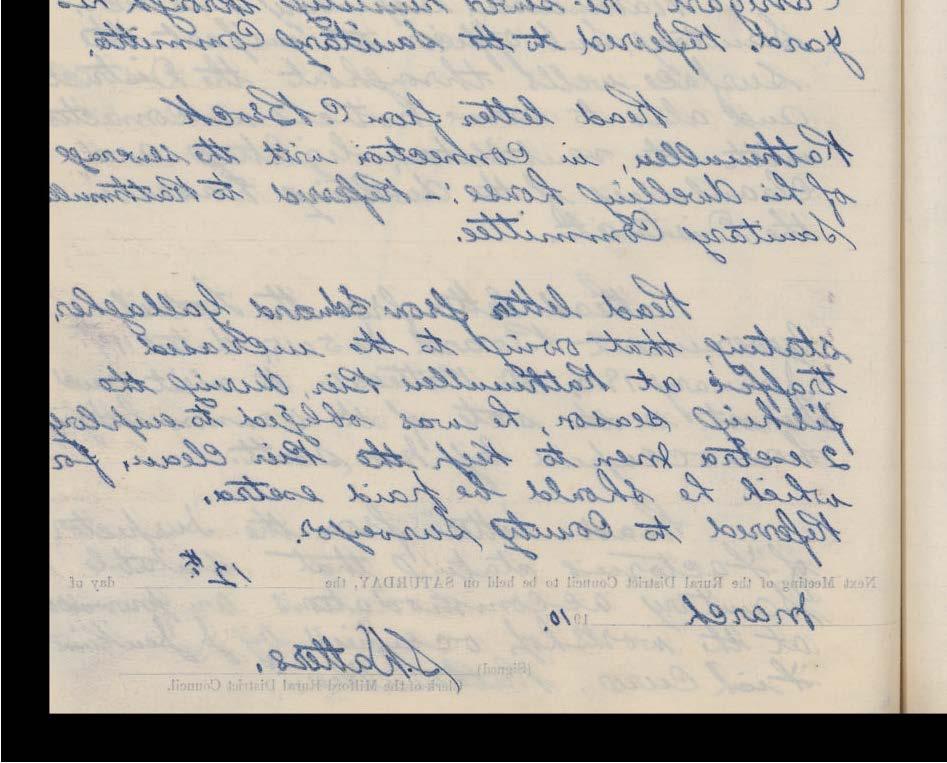 yard. Referred to the Sanitary Committee.
Read letter from C Brock
Rathmullen, in connection with the sewerage
of his dwelling house :- Referred to Rathmull
Sanitary Committee.
Read letter from Edward Gallagher,
stating, that owing to the increased
traffic at Rathmullen Pier, during the
fishing season, he was obliged to employ
2 exetra men to keep the Pier clean, for
which he should be paid exetra.
Referred to County Surveyor.
Next Meeting of the Rural District Council to be held on SATURDAY, the 12th day of
March 1910.
(Signed) Watters.
Clerk of the Milford Rural District Council.